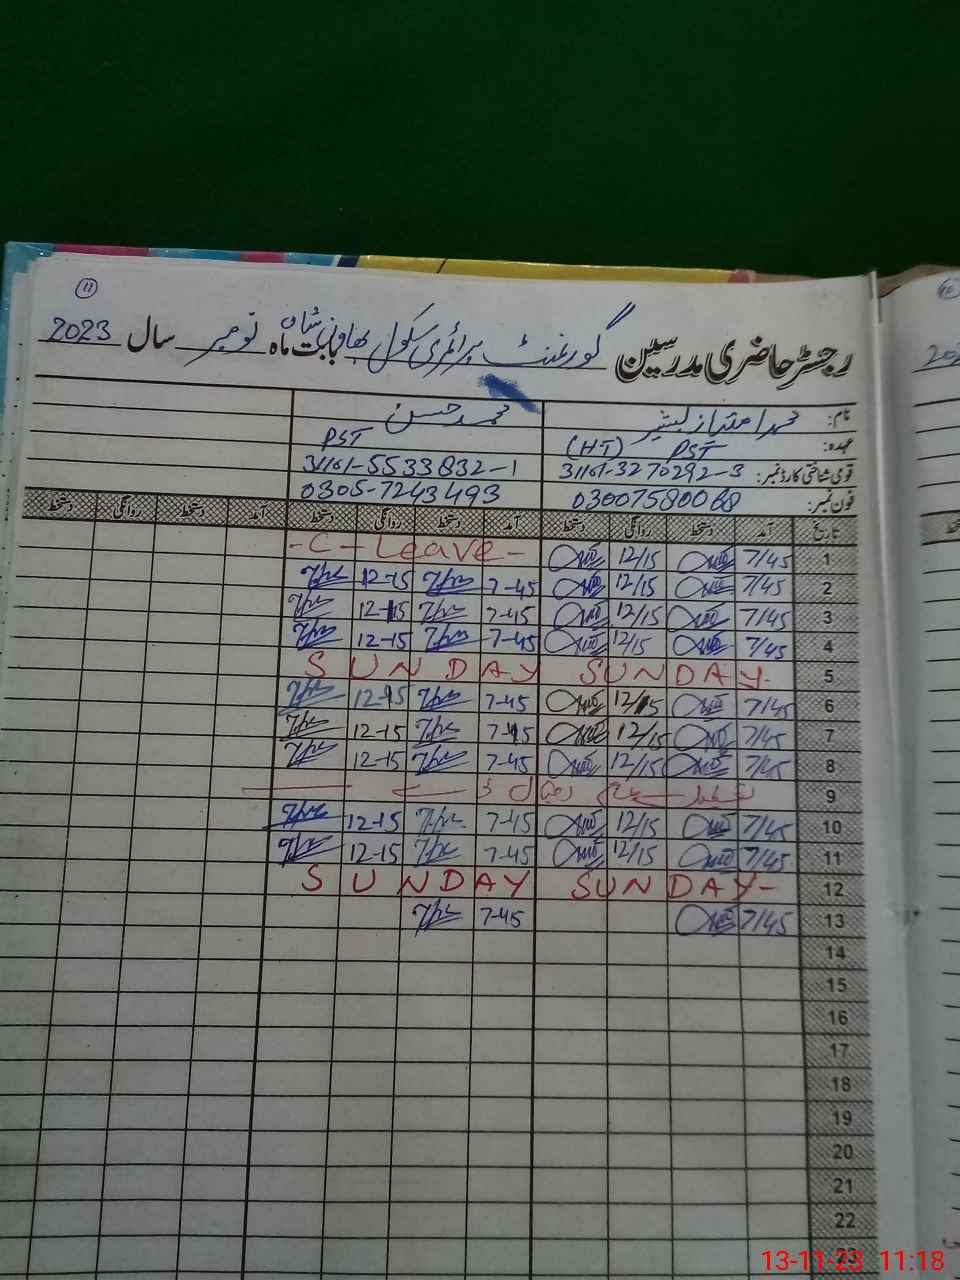 11
رجسٹر حاضری مدرسین گورنمنٹ پرائمری سکول بھاونی شاہ بابت ماہ نومبر سال 2023
نام: محمد امتیاز بشیر محمد حسن
عہدہ: PST (HT) PST
قومی شناختی کارڈ نمبر: 31101-3270292-3 31101-5533832-1
فون نمبر: 03007580088 0305-7243493
تاریخ آمد دستخط روانگی دستخط آمد دستخط روانگی دستخط آمد دستخط روانگی دستخط
1 7/45 12/15 -C-Leave-
2 7/45 12/15 7-45 12-15
3 7/45 12/15 7-45 12-15
4 7/45 12/15 7-45 12-15
5 SUNDAY SUNDAY
6 7/45 12/15 7-45 12-15
7 7/45 12/15 7-45 12-15
8 7/45 12/15 7-45 12-15
9
10 7/45 12/15 7-45 12-15
11 7/45 12/15 7-45 12-15
12 SUNDAY SUNDAY
13 7/45 7-45
14
15
16
17
18
19
20
21
22
23
13-11-23 11:18